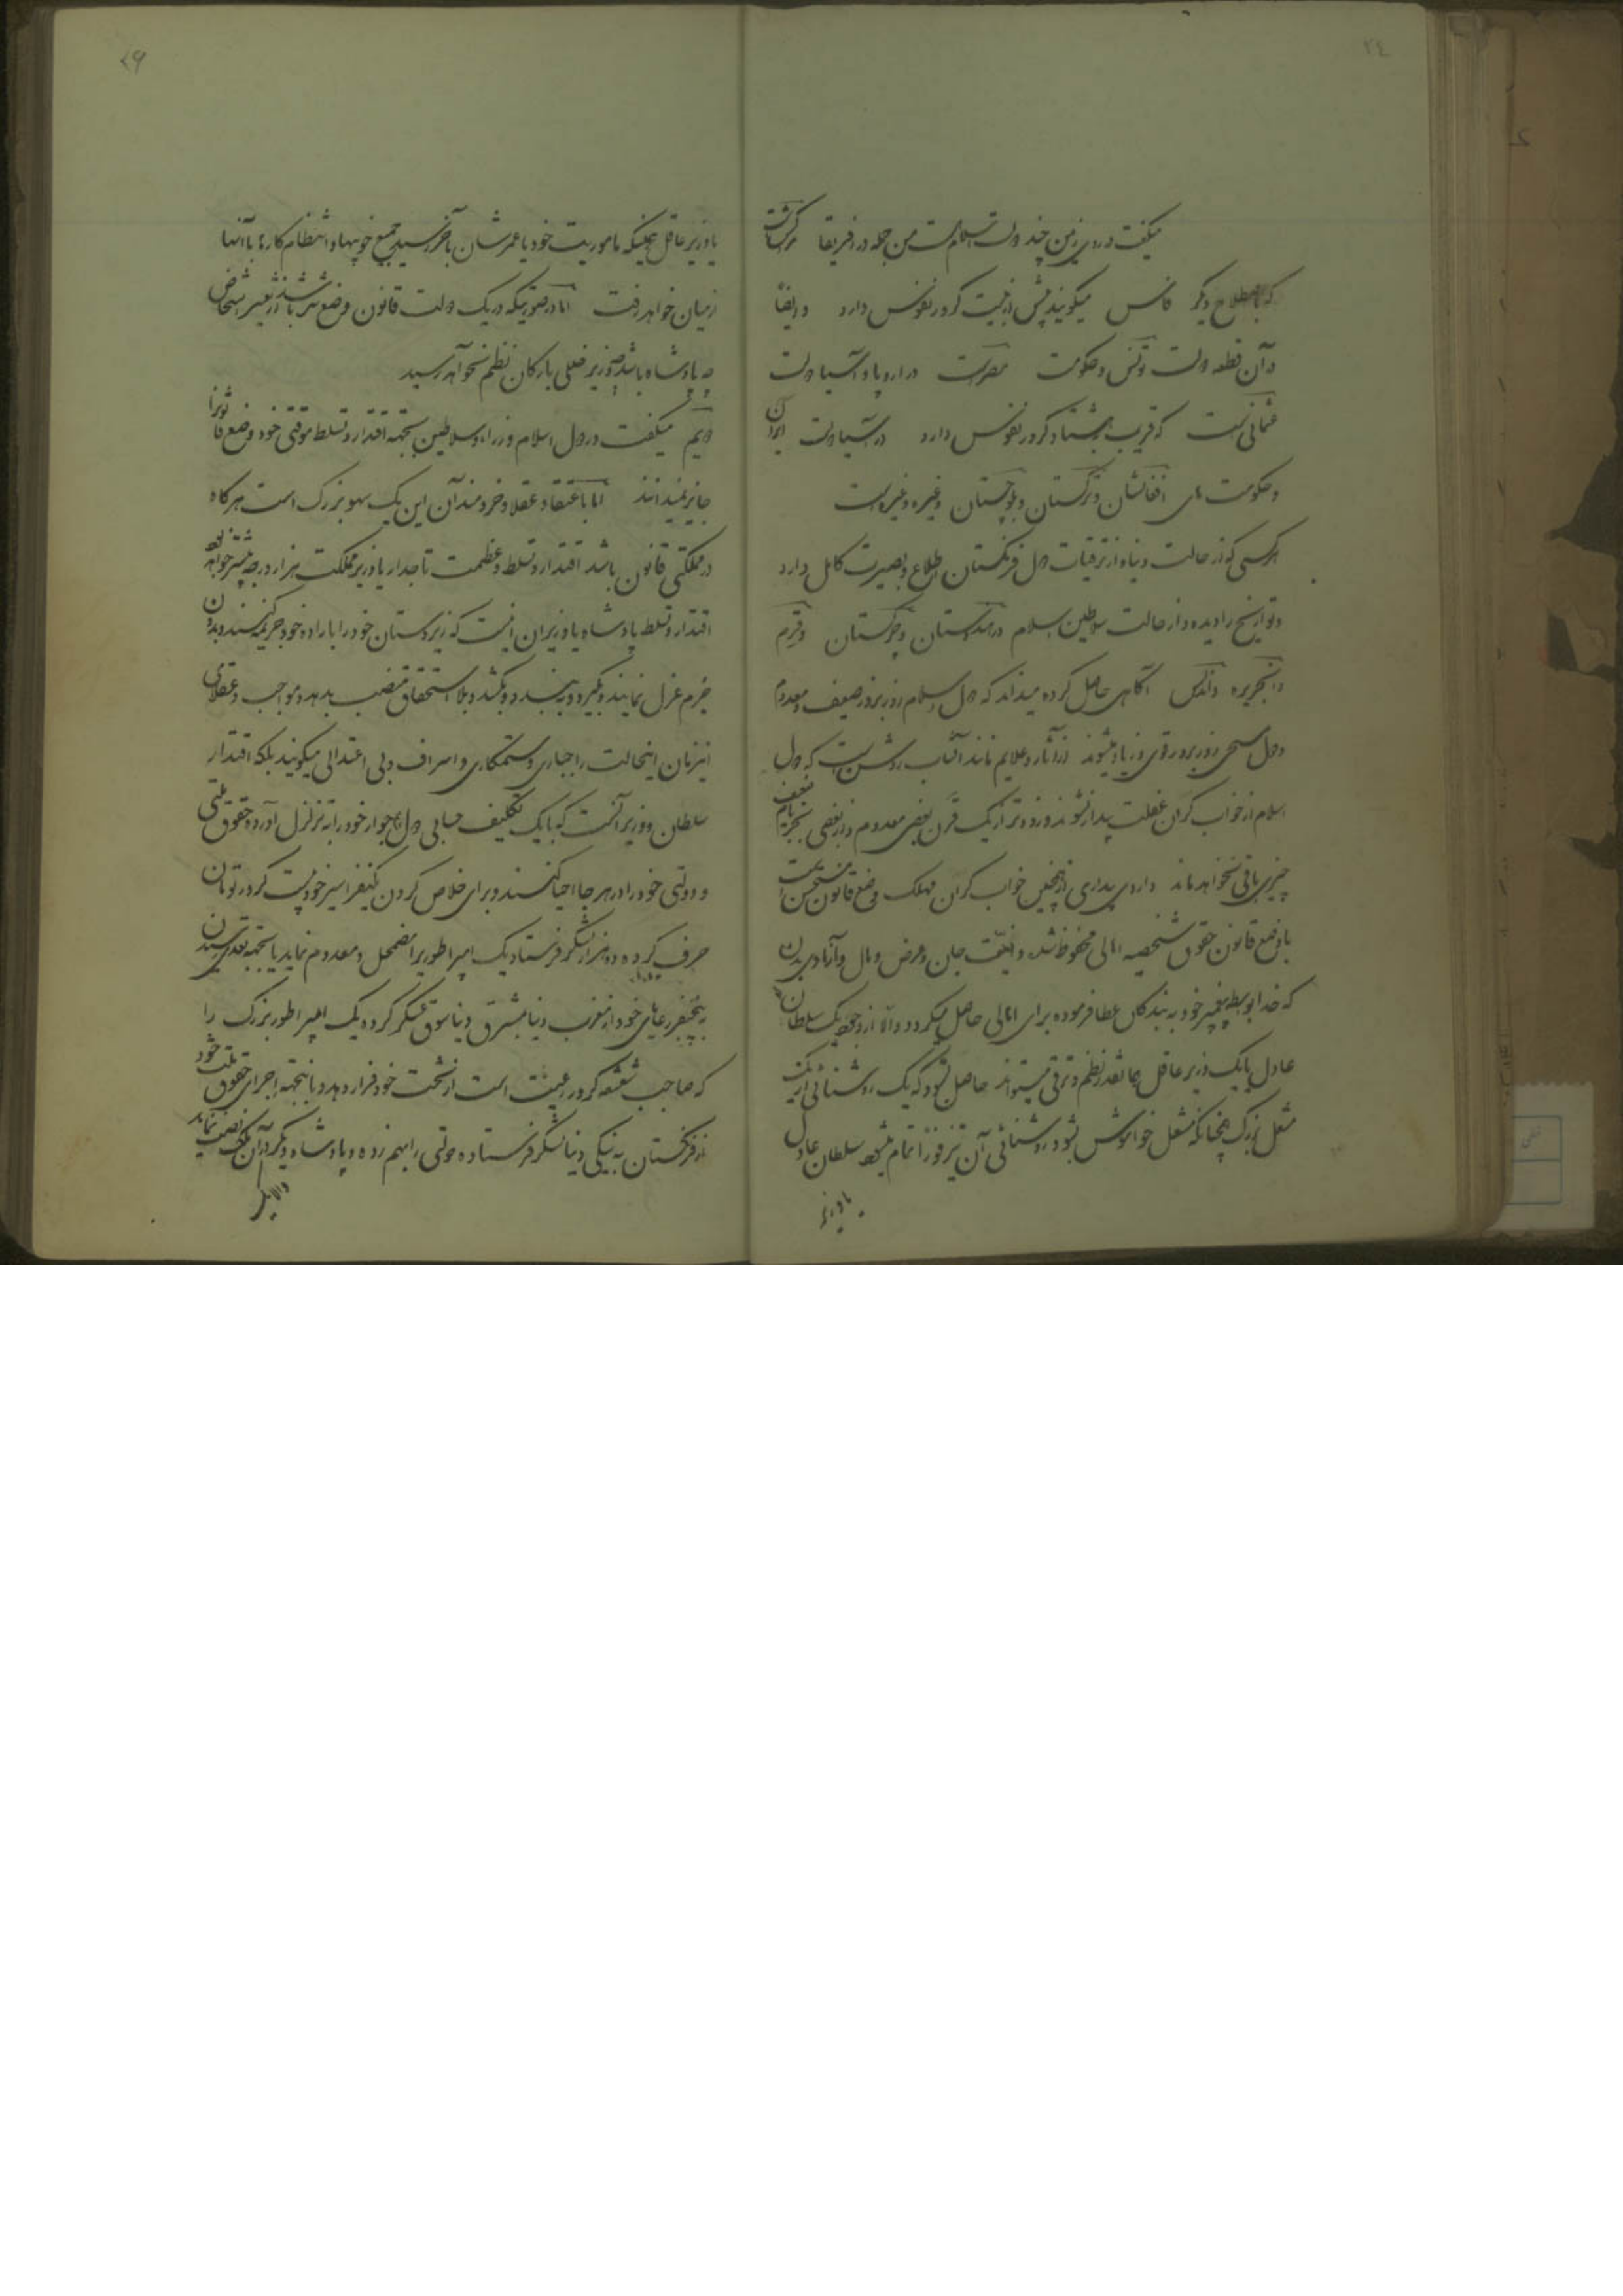 ۲٤
میکفت در روی زمین چند دولت اسلام است من جمله در افریقا مراکش است
که باصطلاح دیگر فاس میکویند پیش از بیست کرور نفوس دارد و ایضاً
در آن قطعه دولت تونس و حکومت مصر است در اروپا و آسیا دولت
عثمانی است که قریب هشتاد کرور نفوس دارد در آسیا دولت ایران
و حکومت های افغانستان و ترکستان و بلوچستان و غیره و غیره است
هر کسی که از حالت دنیا و از ترقیات دول فرنکستان اطلاع و بصیرت کامل دارد
و تواریخ را دیده و از حالت سلاطین اسلام در هندوستان و ترکستان و قرم
و الجزیره و اندلس آکاهی حاصل کرده میداند که دول اسلام روز بروز ضعیف و معدوم
و دول مسیحی روز بروز قوی و زیاد میشوند از آثار و علایم مانند آفتاب روشن است که دول
اسلام از خواب کران غفلت بیدار نشوند زودتر از یک قرن بعضی معدوم و از بعضی بجز نام ضعف
چیزی باقی نخواهد ماند داروی بیداری از چنین خواب کران مهلک وضع قانون مستحسن است
با وضع قانون حقوق شخصیه اهالی محفوظ شده و امنیت جان و عرض و مال و آزادی بدن
که خدا بواسطه پیغمبر خود به بندکان عطا فرموده برای اهالی حاصل میکردد والّا از وجود یک سلطان
عادل یا یک وزیر عاقل همانقدر نظم و ترقی میتواند حاصل شود که یک روشنائی از یک
مشعل بزرک همچنانکه مشعل خواموش بشود روشنائی آن نیز فوراً تمام میشود سلطان عادل
یا وزیر
۲۶
یا وزیر عاقل همینکه ماموریت خود یا عمرشان بآخر رسید جمیع خوبیها و انتظام کارها با آنها
از میان خواهد رفت امّا در صورتیکه در یک دولت قانون وضع شده باشد از تغییر اشخاص
چه پادشاه باشد چه وزیر خللی بارکان نظم نخواهد رسید
دایم میکفت در دول اسلام وزراء و سلاطین بجهة اقتدار و تسلط موقتی خود وضع قانونرا
جایز نمیدانند امّا باعتقاد عقلا و خردمندان این یک سهو بزرک است هرکاه
در مملکتی قانون باشد اقتدار و تسلط و عظمت تاجدار یا وزیر مملکت هزار درجه بیشتر خواهد بود
اقتدار و تسلط پادشاه یا وزیران این نیست که زیردستان خود را باراده خود جریمه کنند و بدون
جرم عزل نمایند و بکیرد و به بندد و بکشد و بلا استحقاق منصب بدهد و مواجب و عقلای
این زمان اینحالت را جباری و ستمکاری و اسراف و بی اعتدالی میکویند بلکه اقتدار
سلطان و وزیر آنست که با یک تکلیف حسابی دول همجوار خود را به تزلزل آورد و حقوق ملتی
و دولتی خود را در هر جا احیا کنند و برای خلاص کردن یکنفر اسیر خود بیست کرور تومان
صرف کرده ده هزار لشکر فرستاده یک امپراطوریرا مضمحل و معدوم نماید یا بجهة تعدی رسیدن
به پنجنفر رعایای خود از مغرب دنیا بمشرق دنیا سوق عسکر کرده یک امپراطور بزرک را
که صاحب ششصد کرور رعیت است از تخت خود فرار دهد و یا بجهة اجرای حقوق ملت خود
از فرنکستان به ینکی دنیا لشکر فرستاده دولتی را بهم زده و پادشاه دیکر در آن ملک نصب نماید